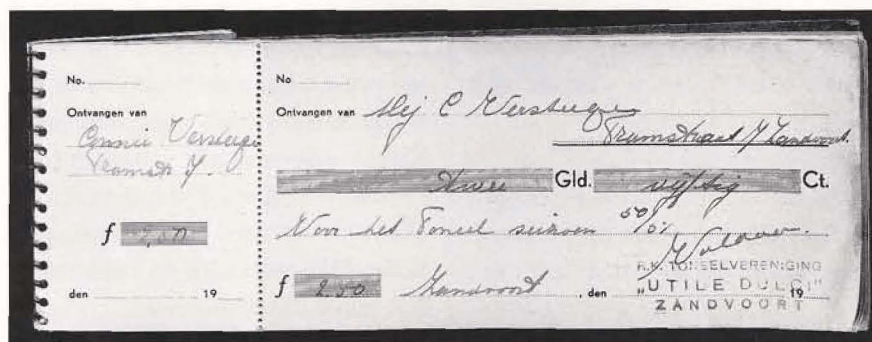 No.
Ontvangen van
Connie Versteege
Tramstr 7.
f 2,50
den 19
No
Ontvangen van Mej C Versteege
Tramstraat 7 Zandvoort.
twee Gld. vijftig Ct.
Voor het Toneel seizoen 50/51
f 2.50 Zandvoort , den 19
R.K. TONEELVERENIGING
„UTILE DULCI"
ZANDVOORT